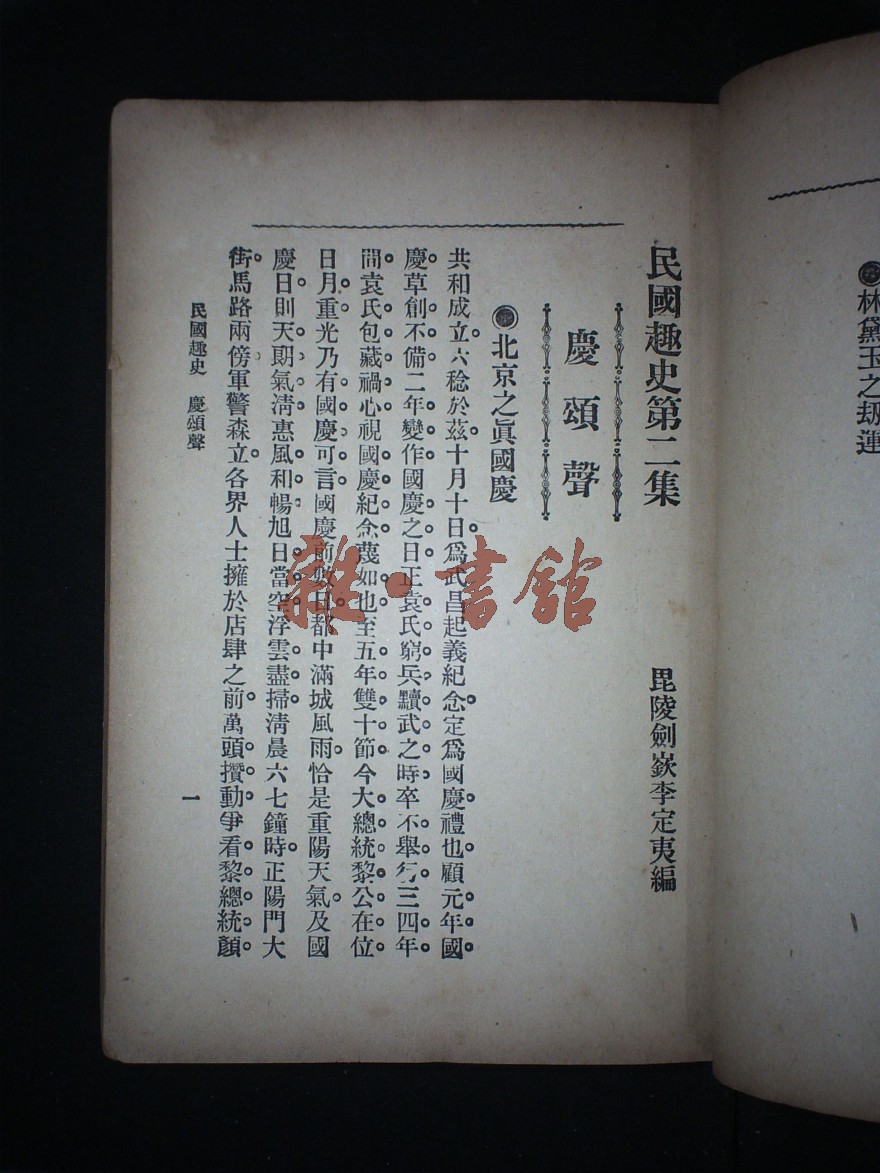 林黛玉之劫運
民國趣史第二集
毘陵劍嶔李定夷編
慶頌聲
北京之眞國慶
共和成立六稔於茲十月十日爲武昌起義紀念定爲國慶禮也顧元年國
慶草創不備二年變作國慶之日正袁氏窮兵黷武之時卒不舉行三四年
間袁氏包藏禍心視國慶紀念蔑如也至五年雙十節今大總統黎公在位
日月重光乃有國慶可言國慶前數日都中滿城風雨恰是重陽天氣及國
慶日則天朗氣淸惠風和暢旭日當空浮雲盡掃淸晨六七鐘時正陽門大
街馬路兩傍軍警森立各界人士擁於店肆之前萬頭攢動爭看黎總統顏
民國趣史 慶頌聲
一
雜·書館